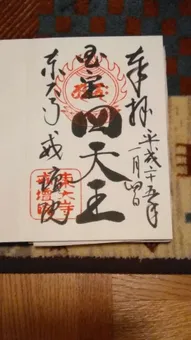 奉拝
平成二十五年
一月四日
国宝 四天王
東大寺 戒壇院
東大寺
戒壇院